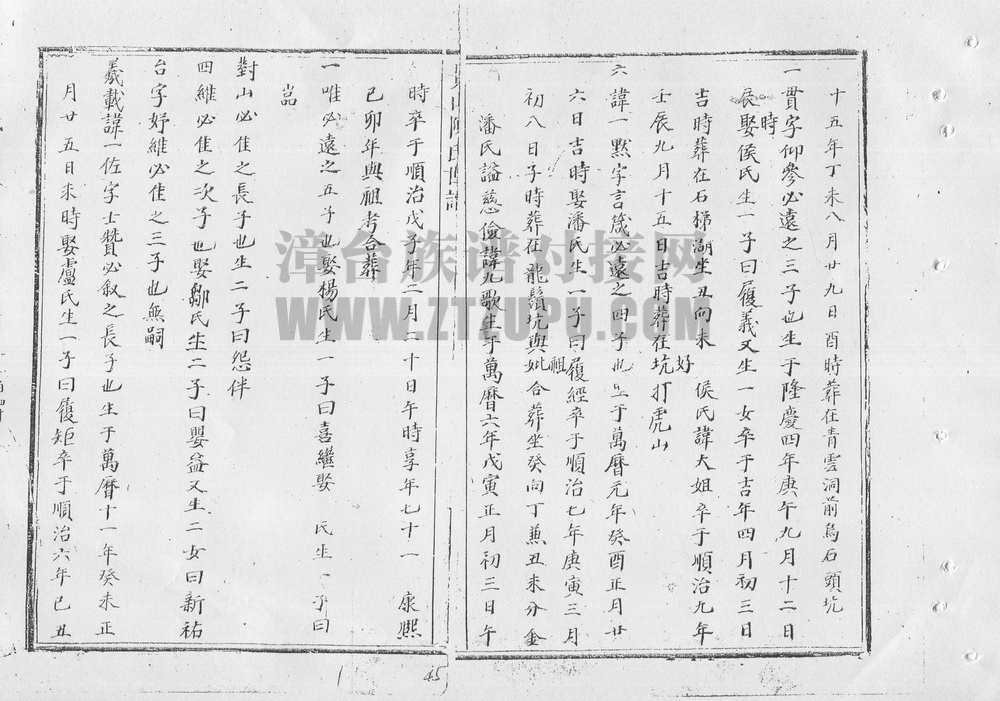 十五年丁未八月廿九日酉時葬在青雲洞前烏石頭坑
一貫字仰參必遠之三子也生于隆慶四年庚午九月十二日
辰時娶侯氏生一子曰履義又生一女卒于吉年四月初三日
吉時葬在石梯湖坐丑向未 侯氏諱大姐卒于順治九年
壬辰九月十五日吉時葬在坑打虎山
好
六諱一默字言箴必遠之四子也生于萬曆元年癸酉正月廿
六日吉時娶潘氏生一子曰履經卒于順治七年庚寅三月
初八日子時葬在龍鬚坑與祖妣合葬坐癸向丁兼丑未分金
潘氏謚慈儉諱九歌生于萬曆六年戊寅正月初三日午
陳氏世譜
時卒于順治戊子年二月二十日午時享年七十一 康熙
己卯年與祖考合葬
一唯必遠之五子也娶楊氏生一子曰喜繼娶 氏生一子曰
喦
對山必佳之長子也生二子曰怨伴
四維必佳之次子也娶鄒氏生二子曰嬰益又生二女曰新祐
台字妤維必佳之三子也無嗣
羲載諱一佐字士贊必叙之長子也生于萬曆十一年癸未正
月廿五日未時娶盧氏生一子曰履矩卒于順治六年己丑
45
漳台族谱对接网
WWW.ZTZUPU.COM